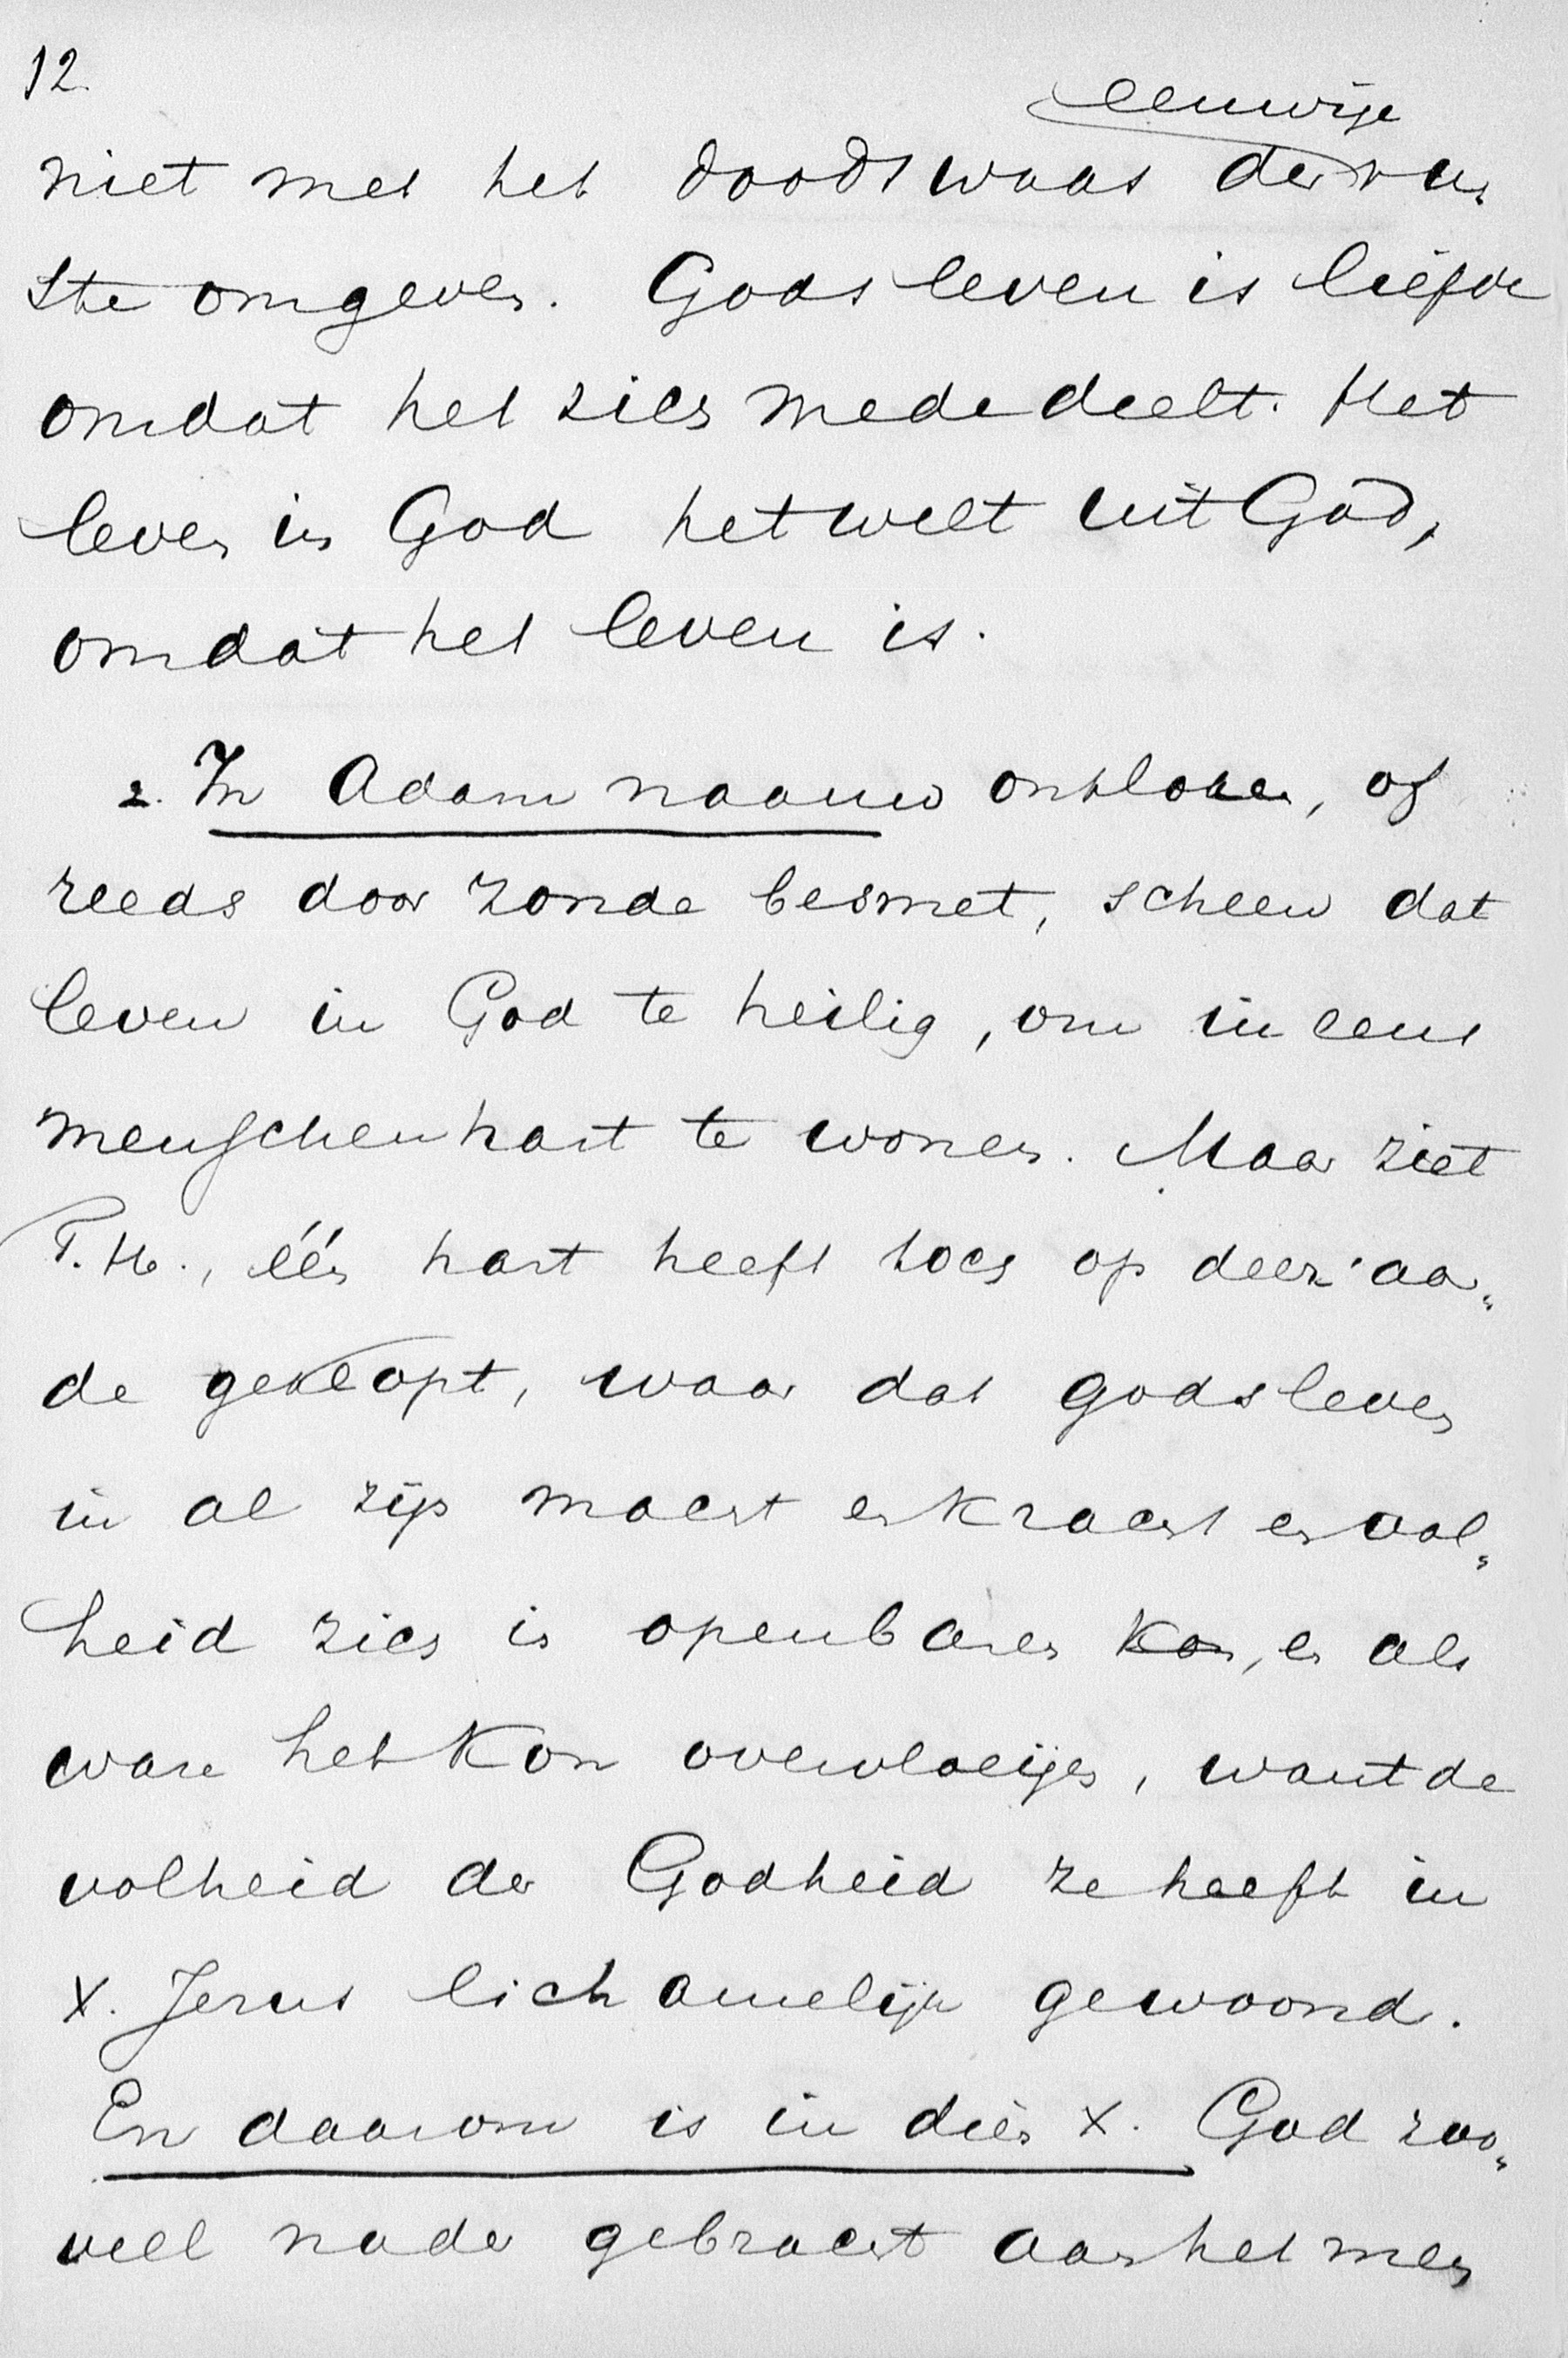 12.
eeuwige
niet met het doodswaas der ru„
ste omgeven. Gods leven is liefde
omdat het zich mededeelt. Het
leven in God het welt uit God,
omdat het leven is.
2. In Adam naauw ontloken, of
reeds door zonde besmet, scheen dat
leven in God te heilig, om in eens
menschenhart te wonen. Maar ziet
T. H., één hart heeft toch op deez' aar„
de geklopt, waar dat godsleven
in al zijn macht en kracht en vol„
heid zich in openbaren kon, en als
ware het kon overvloeijen, want de
volheid der Godheid ze heeft in
X. Jezus lichamelijk gewoond.
En daarom is in dien X. God zoo„
veel nader gebracht aan het men